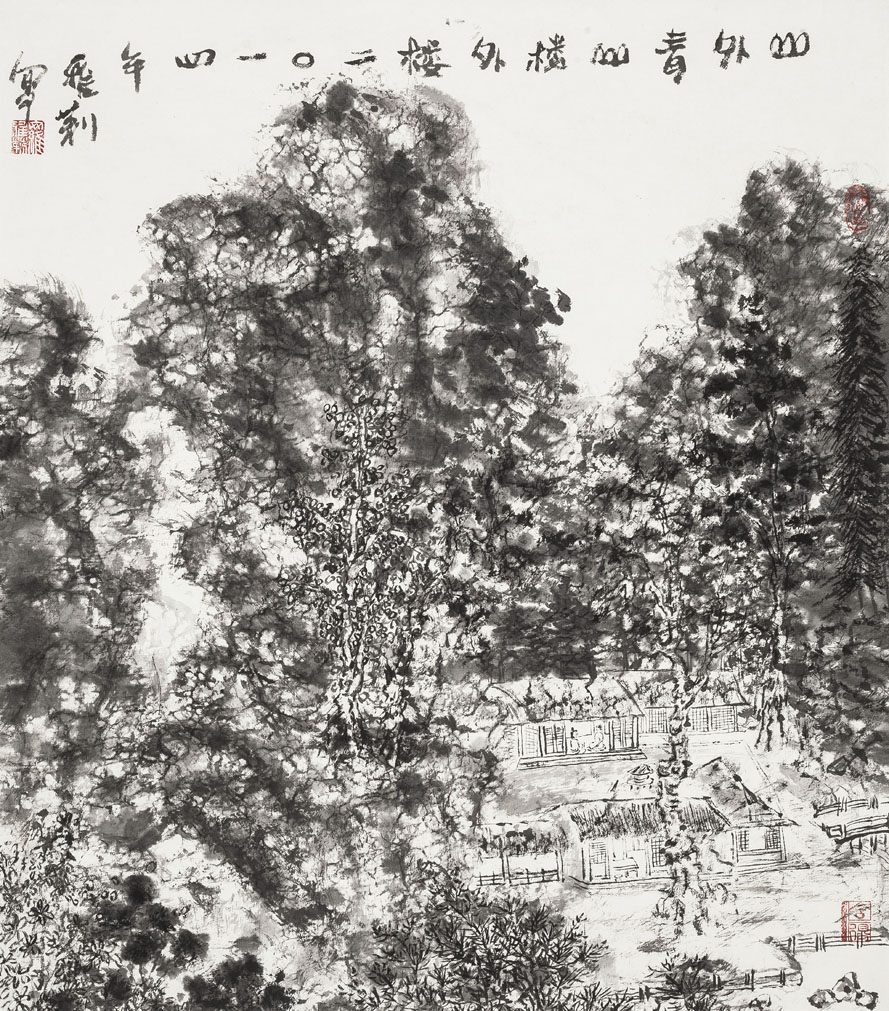 山外青山楼外楼二〇一四年